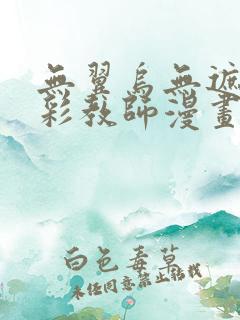 無翼烏無遮
彩教師漫畫
白色毒草
未經同意禁止轉載